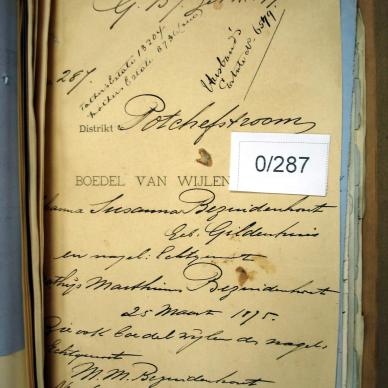 287
Fathers Estate 13207
Mothers Estate
Husband's
Estate No. 6579
Distrikt Potchefstroom
0/287
BOEDEL VAN WIJLEN
Susanna Bezuidenhout
Geb. Gildenhuis
en nagel: Echtgenoot
Marthinus Bezuidenhout
25 Maart 1895.
Zie ook boedel wijlen de nagel:
Echtgenoot
M. M. Bezuidenhout